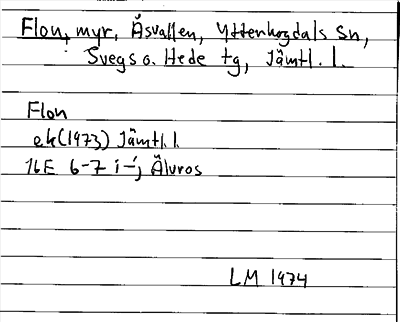 Flon, myr, Åsvallen, Ytterhogdals sn,
Svegs o. Hede tg, Jämtl. l.
Flon
ek (1973) Jämtl. l.
16E 6-7 i-j Älvros
LM 1974